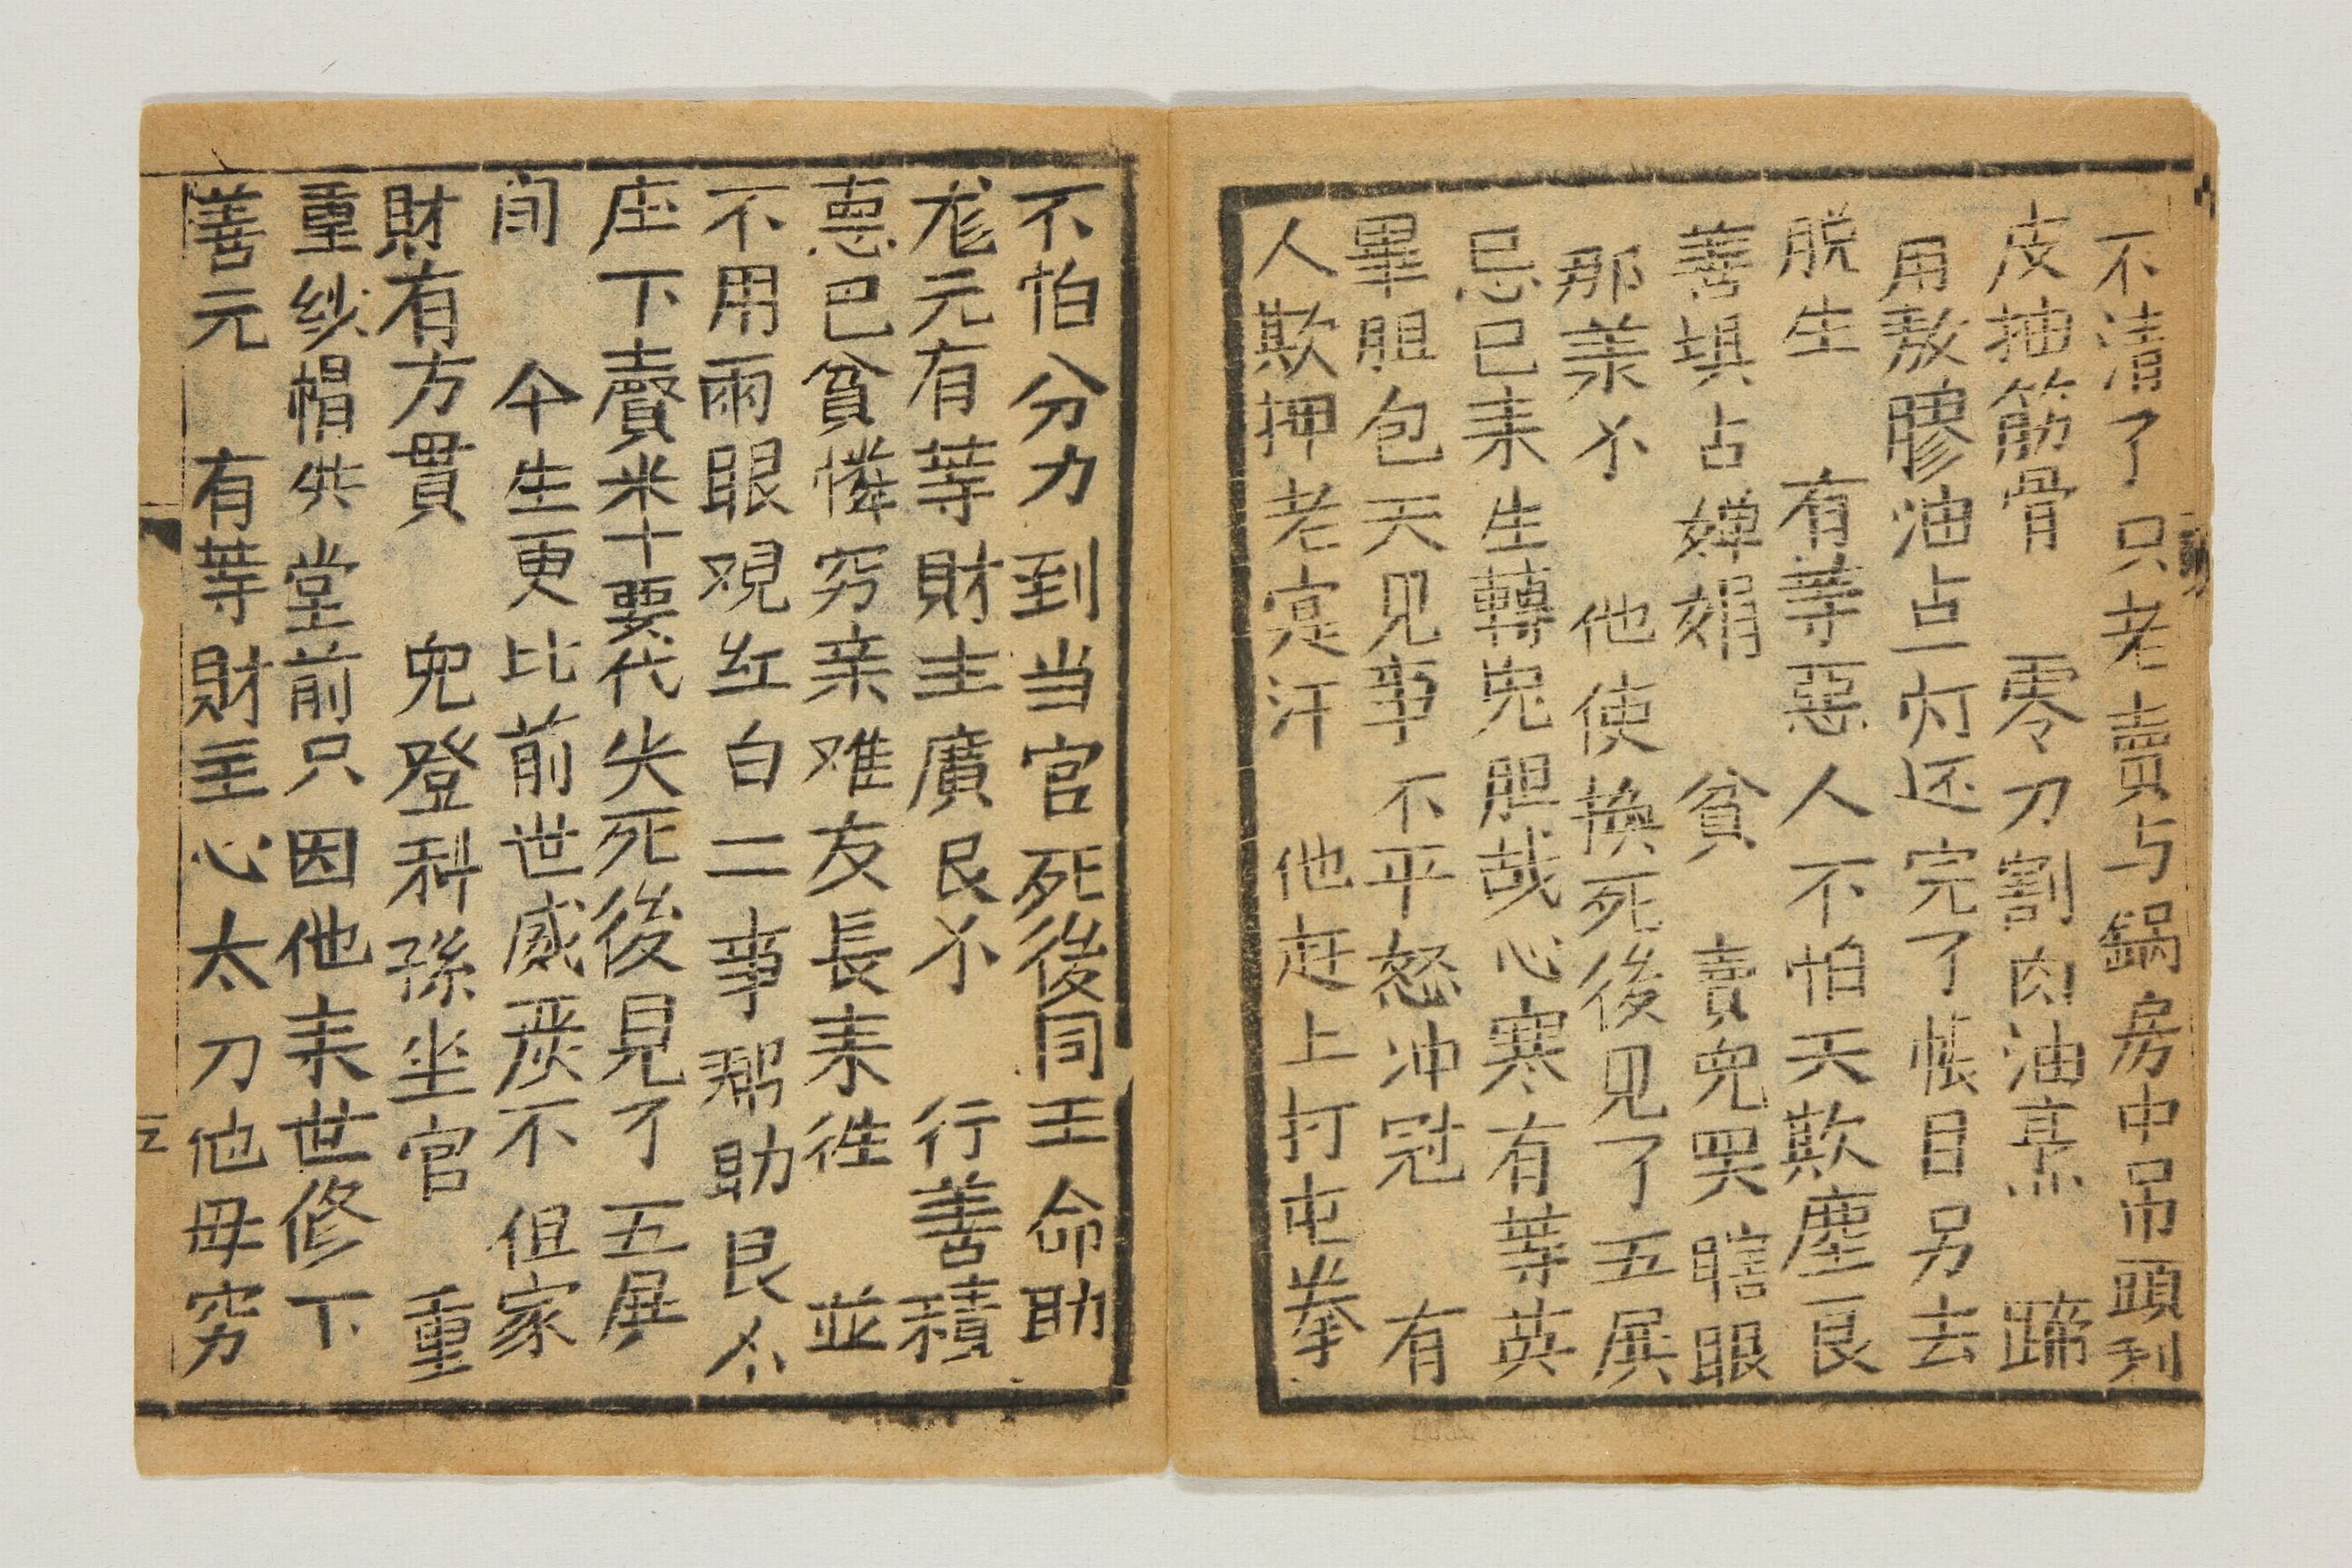 不清了只老賣与鍋房中吊頭利
皮抽筋骨 零刀割肉油烹 蹄
用敖膠油点灯还完了帐目另去
脱生 有等惡人不怕天欺塵良
善填占婵娟 貧 賣児哭瞎眼
那羕不 他使换死後见了五展
忌巳耒生轉児胆哉心寒有等英
畢胆包天见事不平怒冲冠 有
人欺押老寔汗 他赶上打屯拳
不怕分力到当官死後同王命助
元有等財主廣良不 行善積
惪巴貧憐穷亲难友長耒徃 並
不用兩眼覌红白二事帮助良不
座下賣米十要代头死後見了五展
闰 今生更比前世威炭不但家
財有方貫 児登科孫坐官 重
重紗帽共堂前只因他耒世修下
善元 有等財主心太刀他毋穷